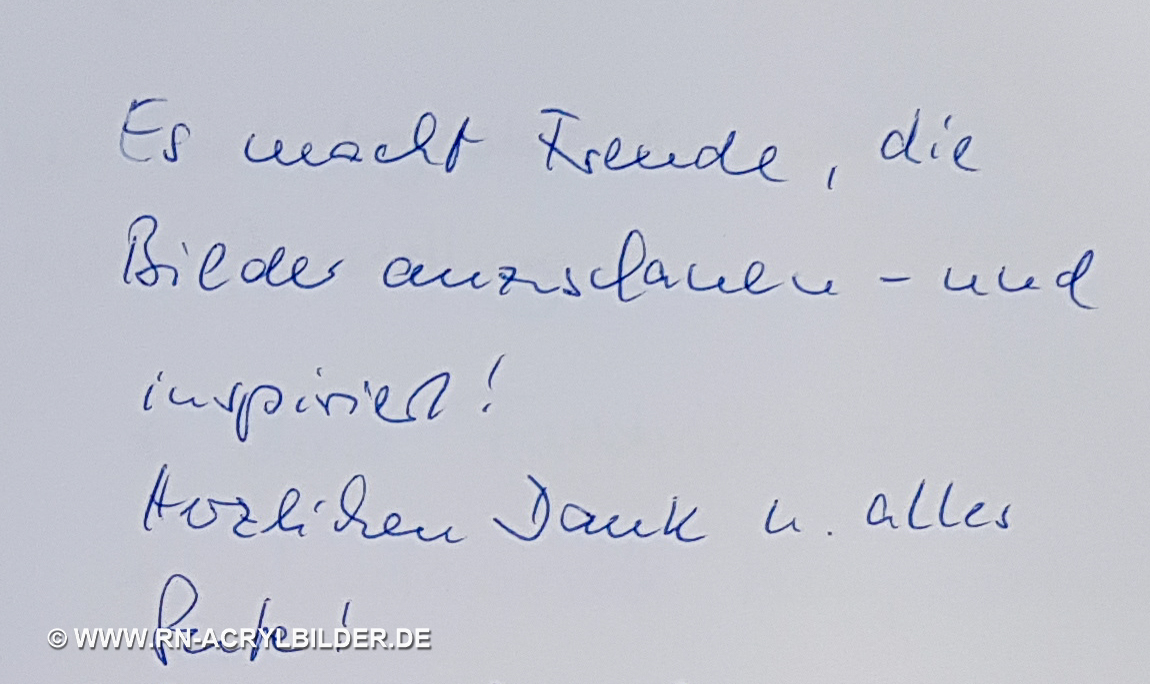 Es macht Freude, die
Bilder anzuschauen - und
inspiriert!
Herzlichen Dank u. alles
Gute!
© WWW.RN-ACRYLBILDER.DE